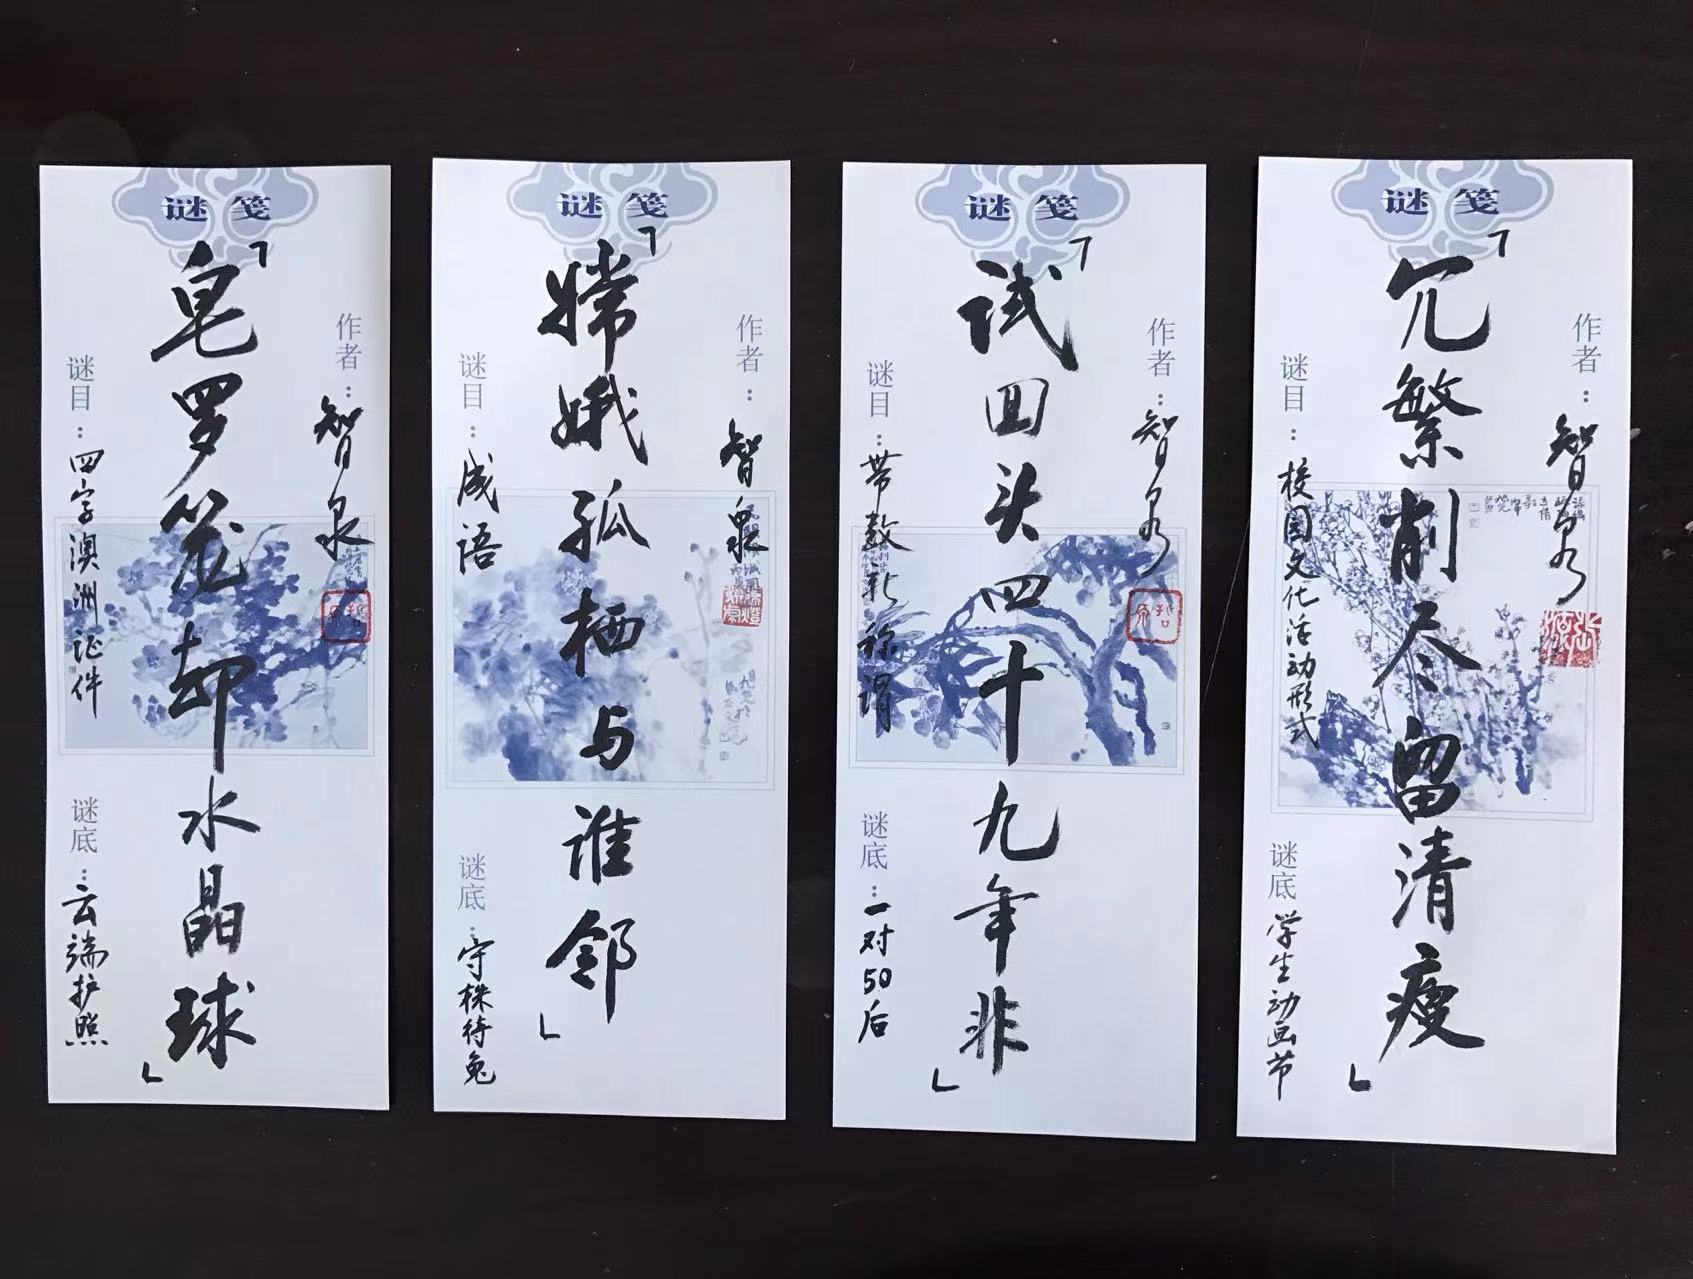 谜笺
「皂罗笼却水晶球」
作者：智泉
谜目：四字澳洲证件
谜底：云端护照
谜笺
「嫦娥孤栖与谁邻」
作者：智泉
谜目：成语
谜底：守株待兔
谜笺
「试回头四十九年非」
作者：智泉
谜目：带数新称谓
谜底：一对50后
谜笺
「冗繁削尽留清瘦」
作者：智泉
谜目：校园文化活动形式
谜底：学生动画节